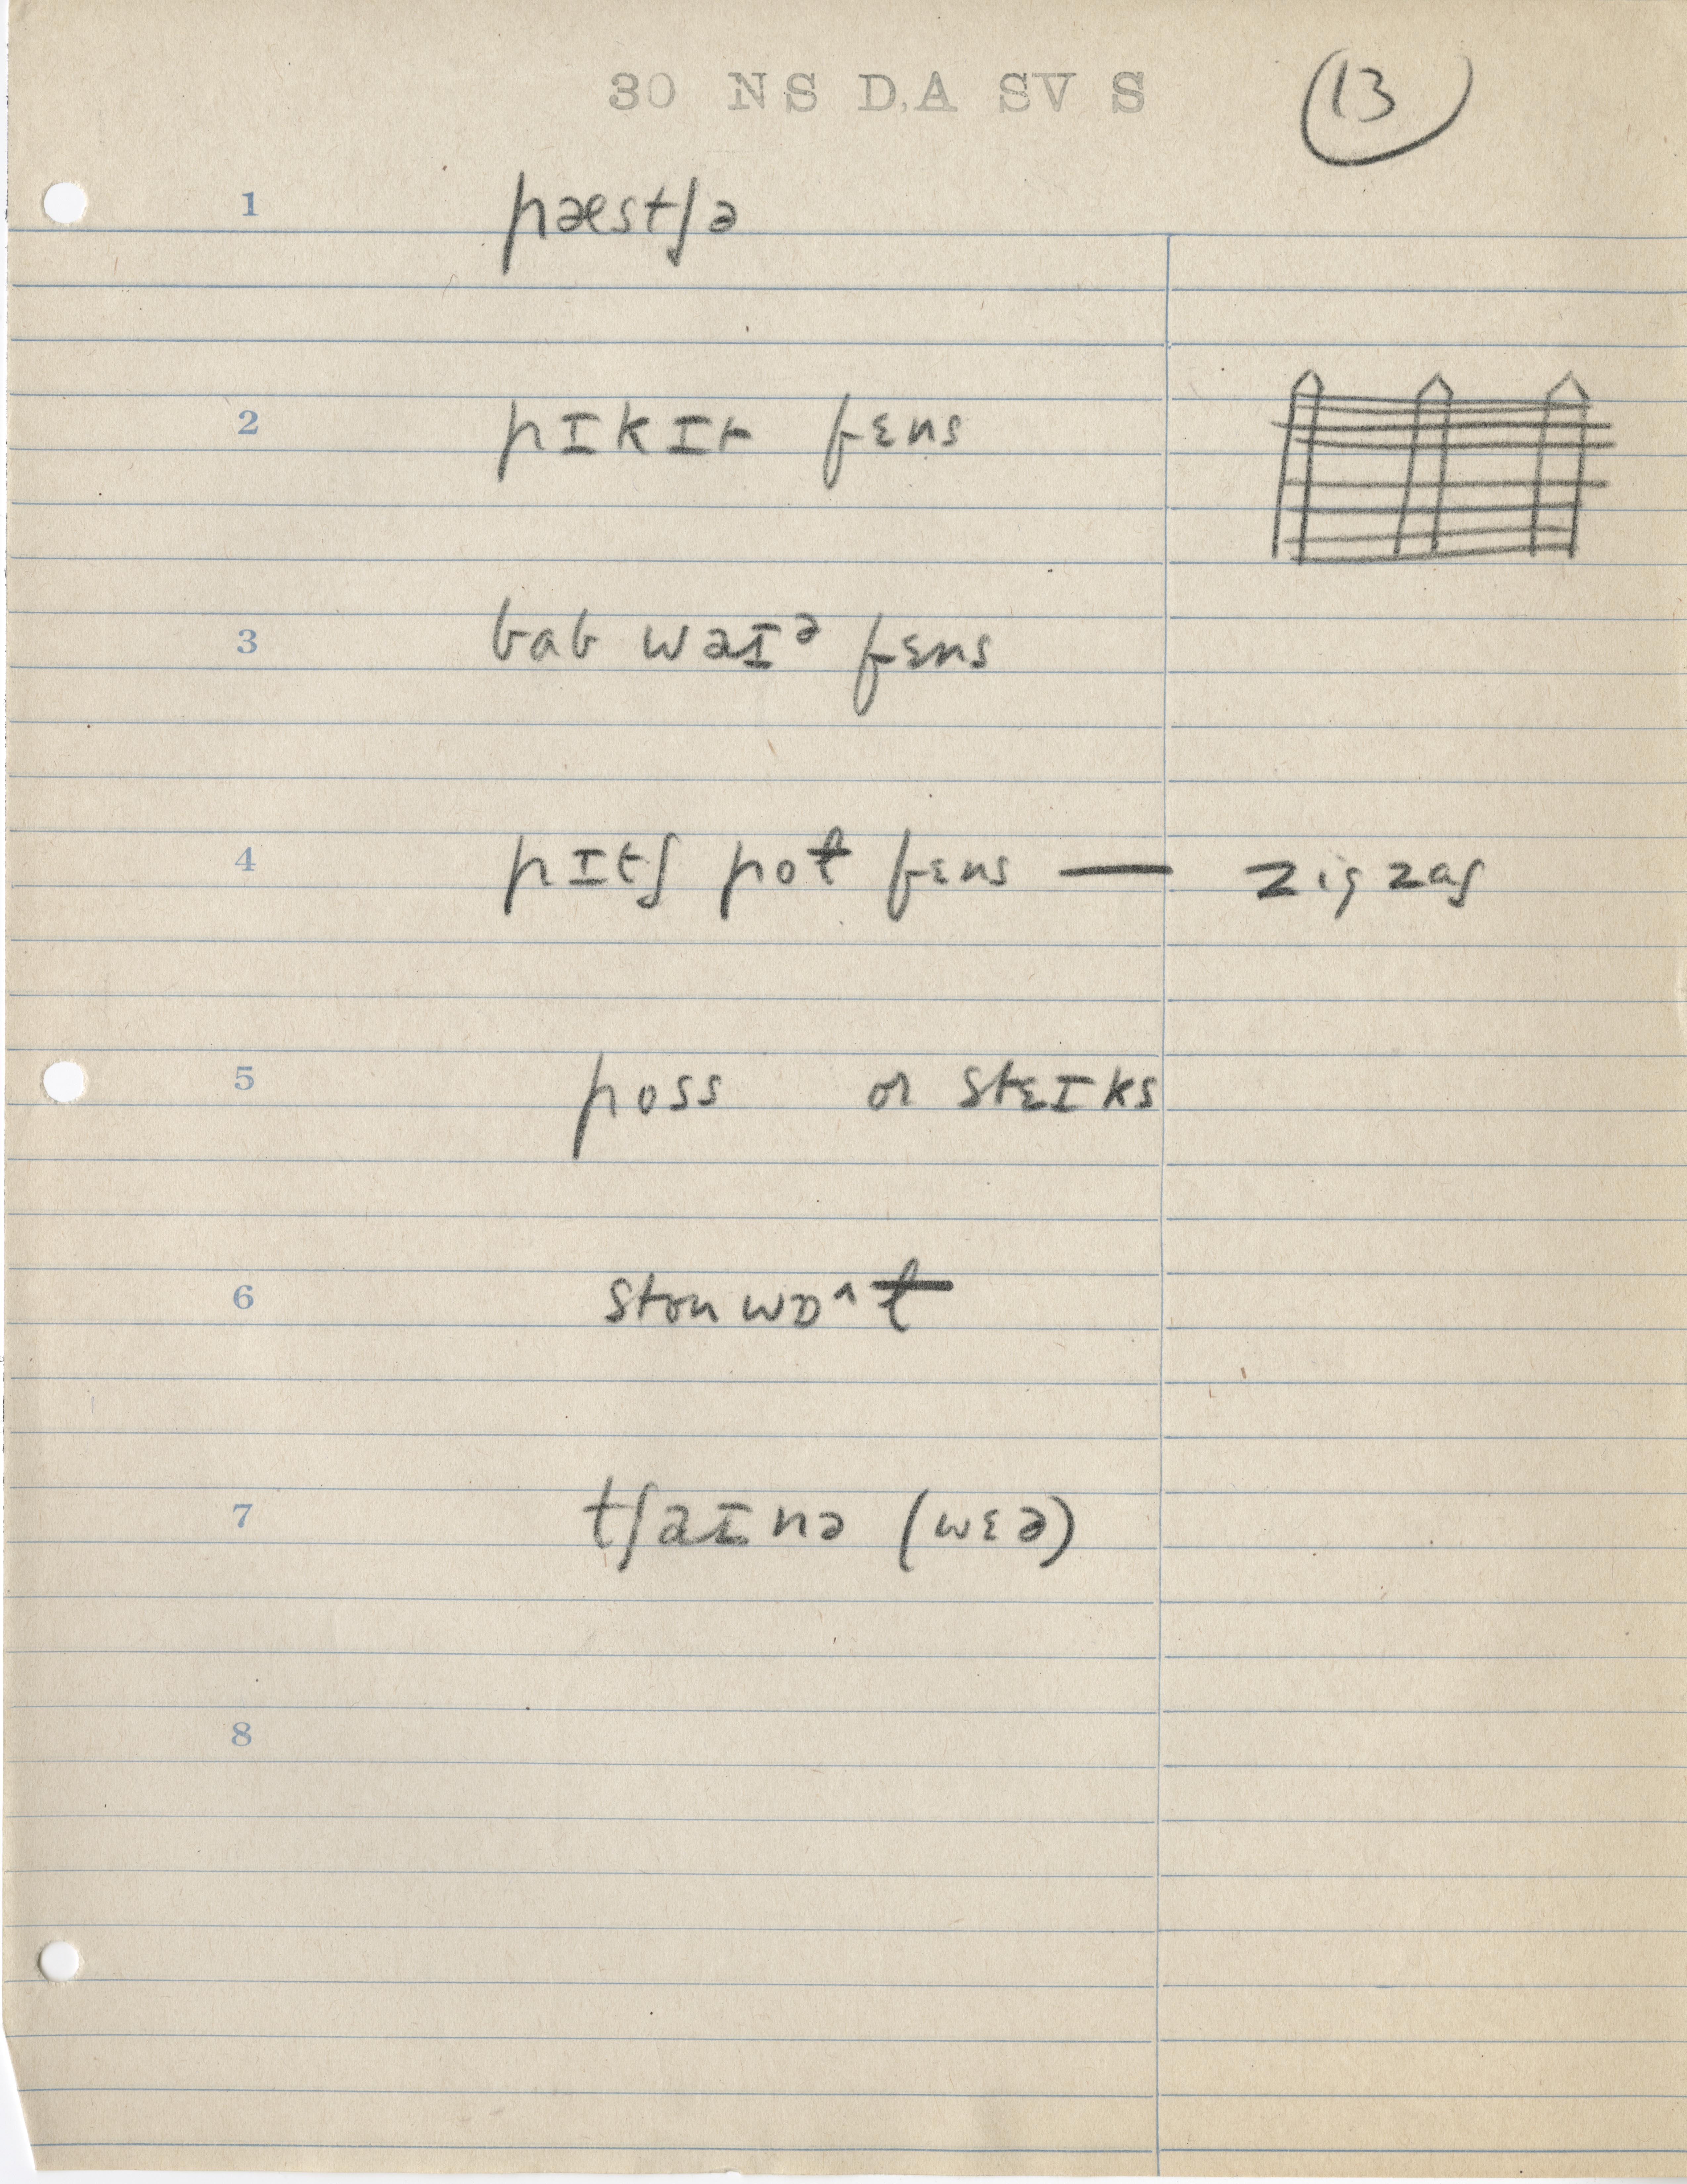 30 NS D,A SV S
13
1 pæstʃə
2 pɪkɪt fɛns
3 bab wəɪᵊ fɛns
4 pɪtʃ poɫ fɛns — zigzag
5 poss or stɛɪks
6 ston wɒ^ɫ
7 tʃəɪnə (wɛə)
8